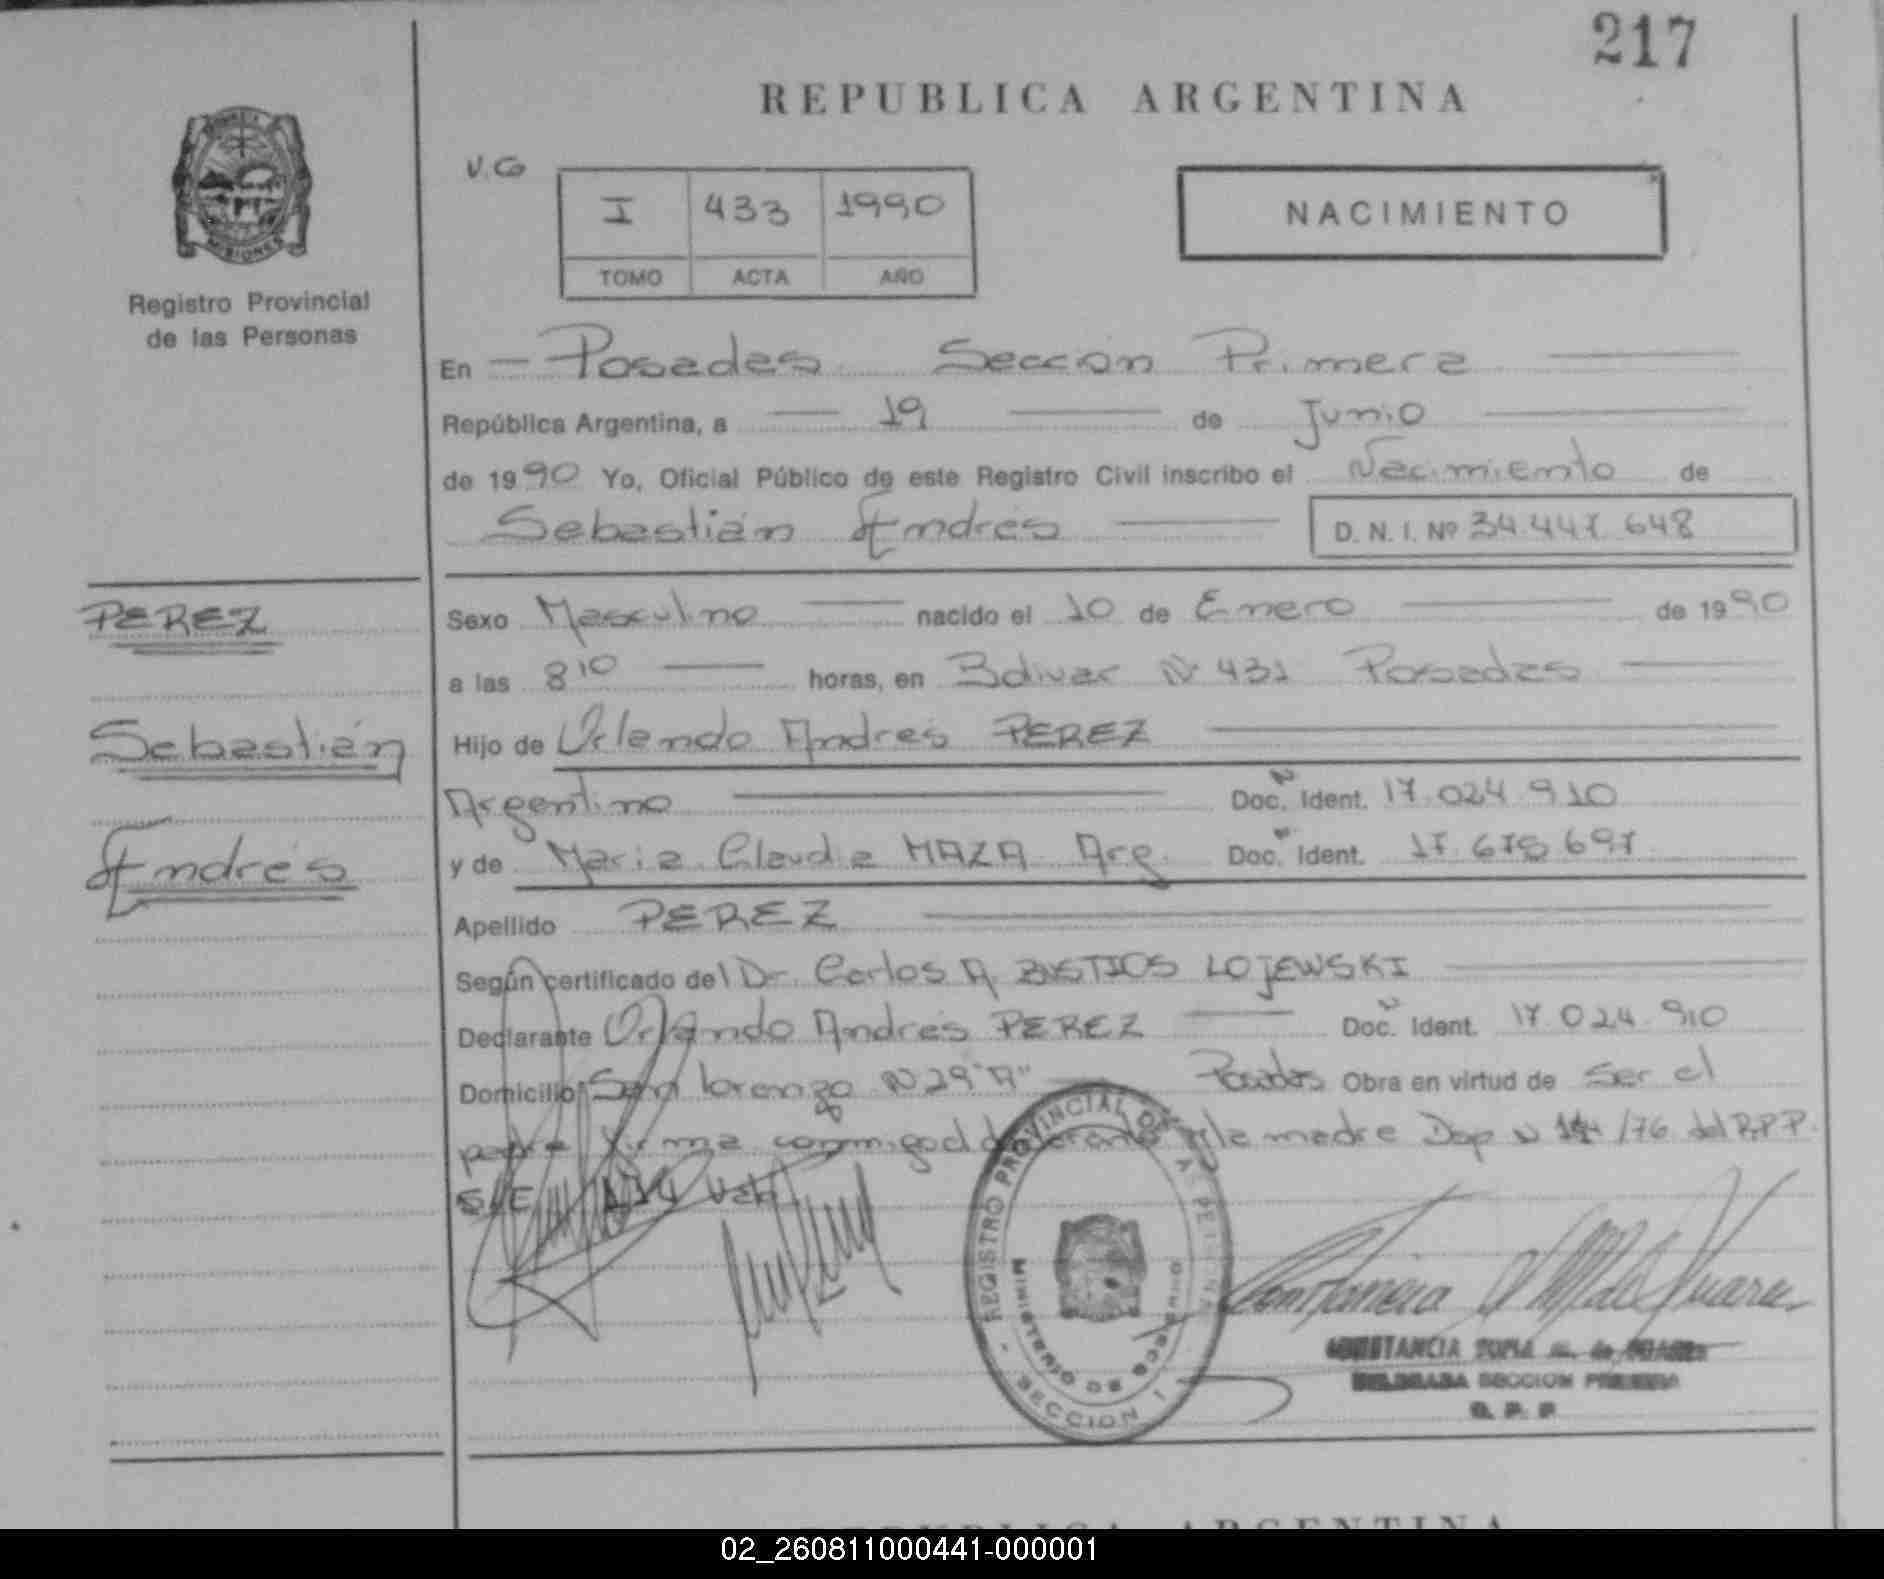 217
REPUBLICA ARGENTINA
MISIONES
Registro Provincial
de las Personas
V.Co
I 433 1990
TOMO ACTA AÑO
NACIMIENTO
En Posadas Sección Primera
República Argentina, a 19 de Junio
de 1990 Yo, Oficial Público de este Registro Civil inscribo el Nacimiento de
Sebastián Andrés D.N.I. Nº 34.447.648
PEREZ
Sebastián
Andrés
Sexo Masculino nacido el 10 de Enero de 1990
a las 8 10 horas, en Bolivar Nº 431 Posadas
Hijo de Orlando Andrés PEREZ
Argentino Doc. Ident. 17.024.910
y de Maria Claudia MAZA Arg. Doc. Ident. 17.678.697
Apellido PEREZ
Según certificado del Dr. Carlos A. BUSTIOS LOJEWSKI
Declarante Orlando Andrés PEREZ Doc. Ident. 17.024.910
Domicilio San Lorenzo Nº 29 "A" Posadas Obra en virtud de ser el
padre firma conmigo el declarante y la madre Dap Nº /76 del R.P.P.
S/E
REGISTRO PROVINCIAL DE LAS PERSONAS
MINISTERIO DE GOBIERNO
SECCION 1
CONSTANCIA SOFIA M. de
DELEGADA SECCION PRIMERA
R. P. P.
REPUBLICA ARGENTINA
02_260811000441-000001